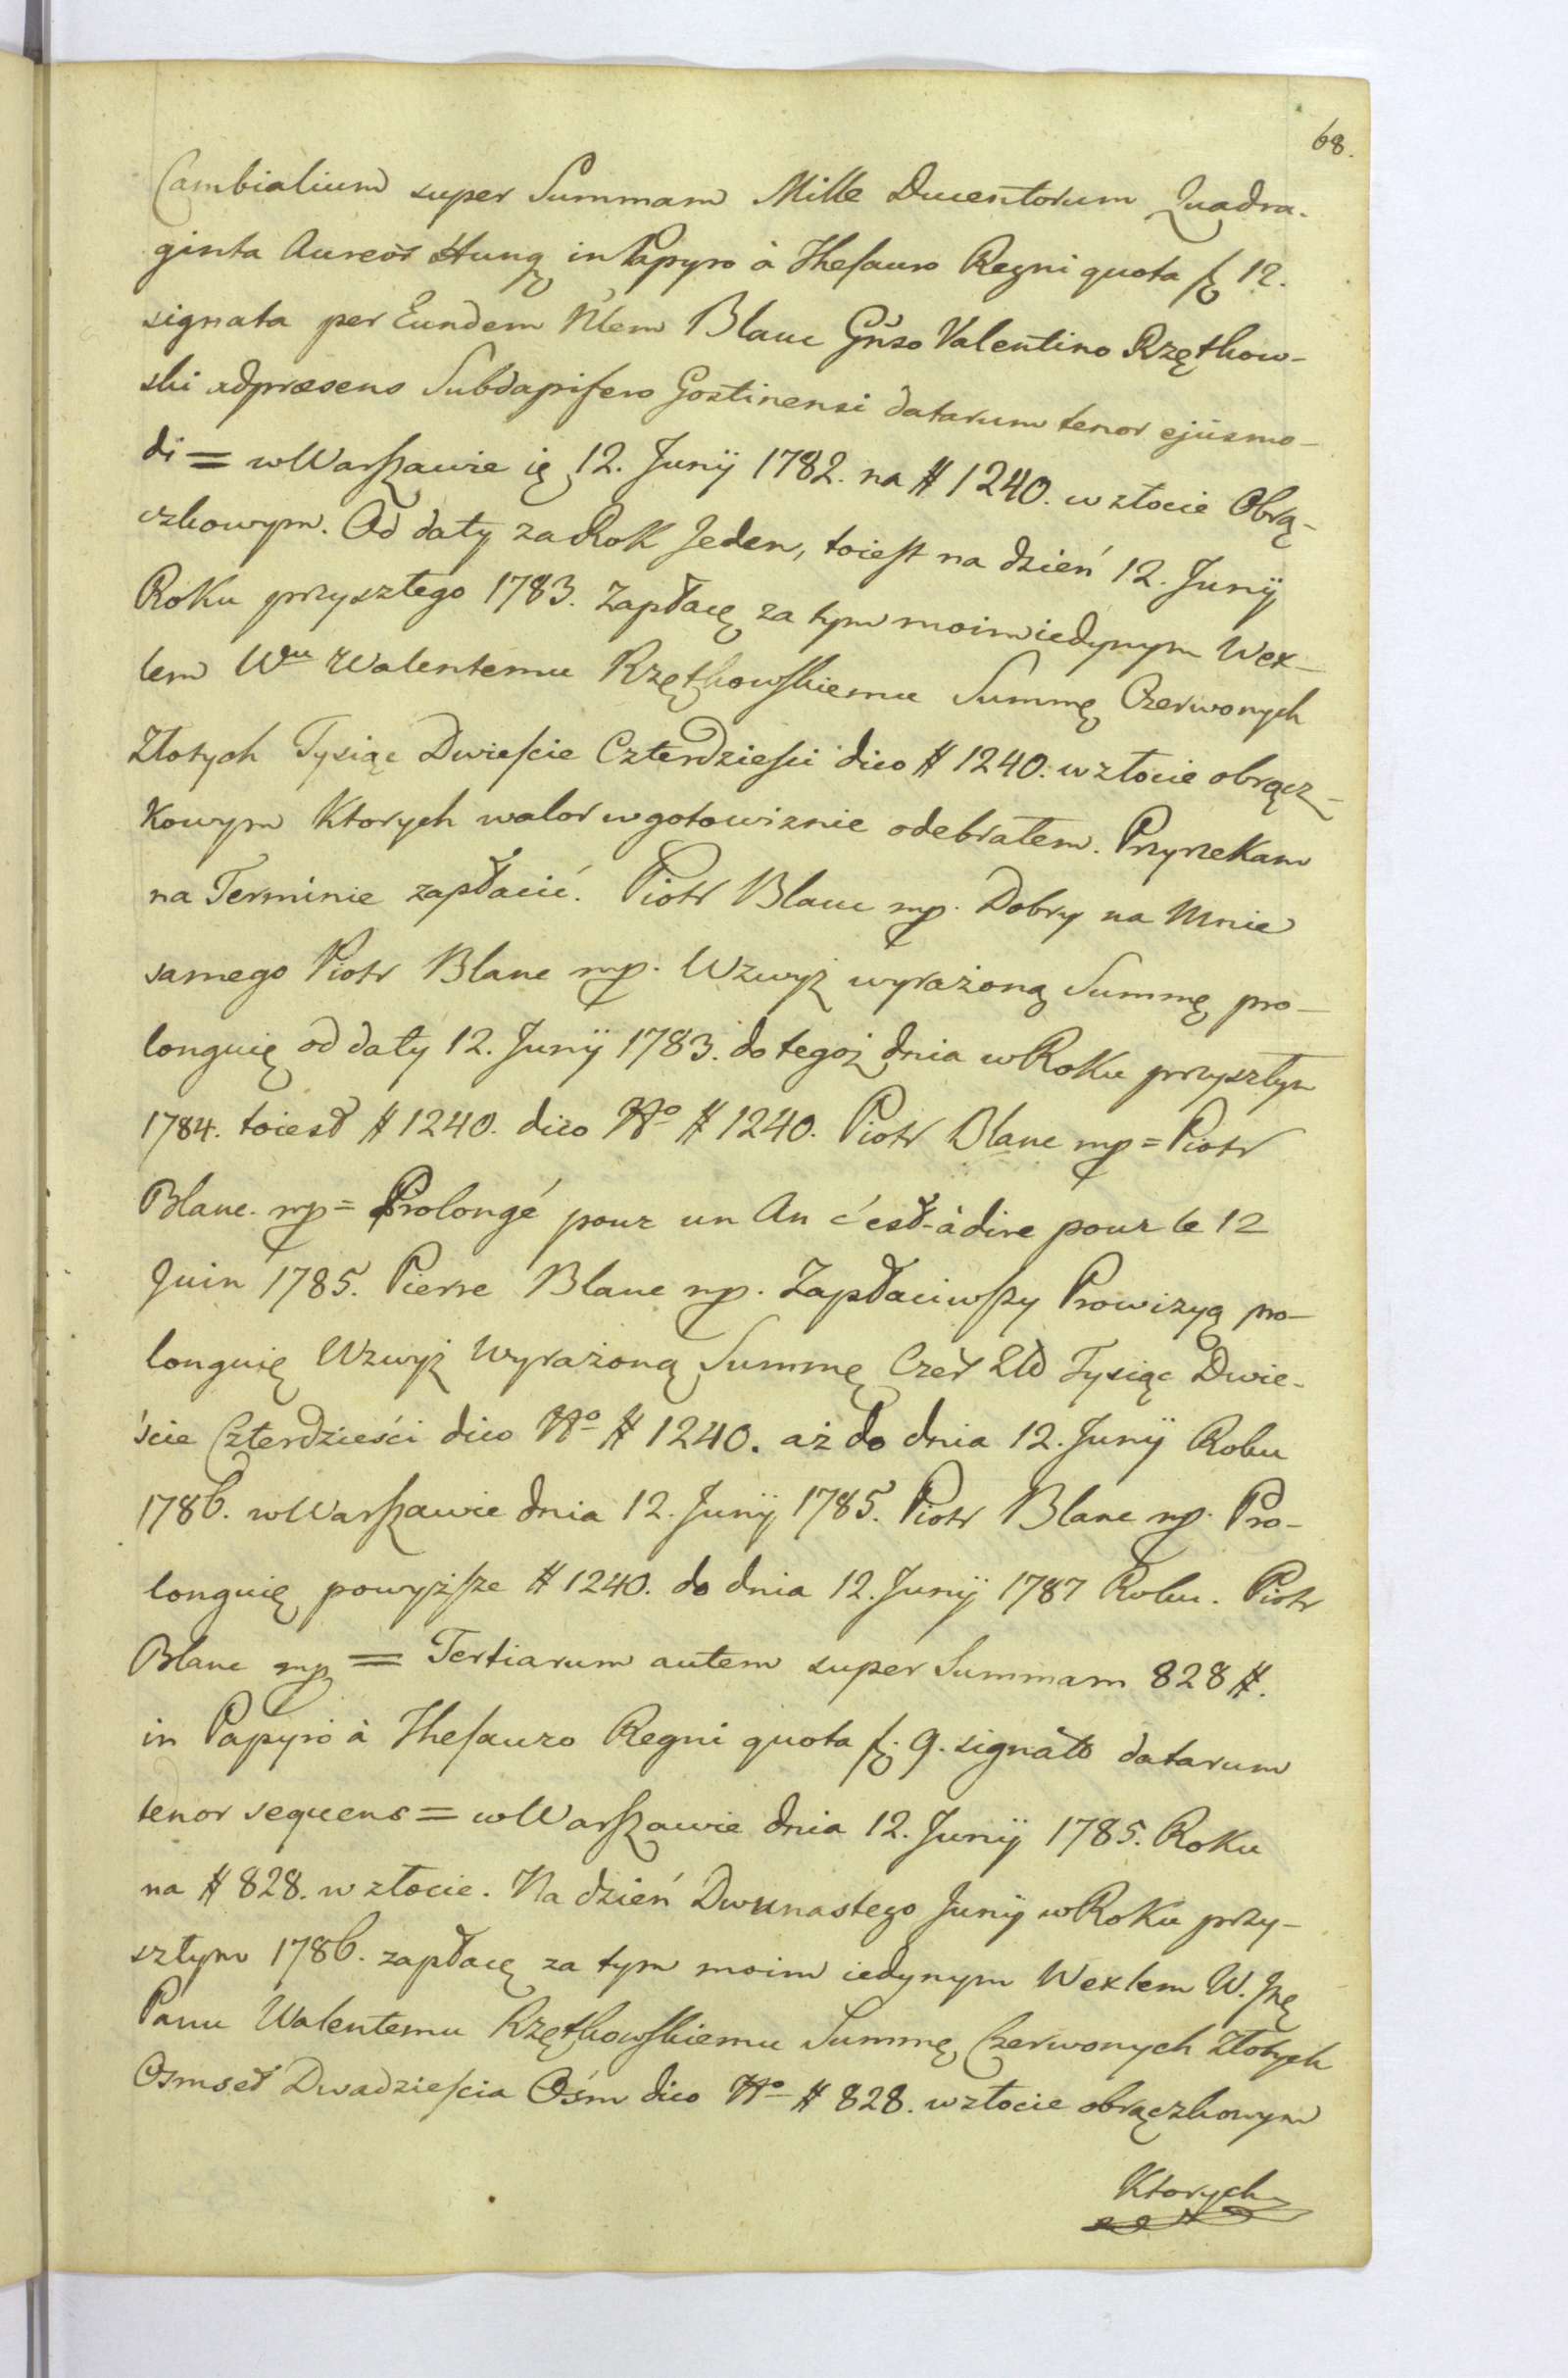 68.
Cambialium super Summam Mille Ducentorum Quadra-
ginta Aureor Hung in Papyro à Thesauro Regni quota f 12.
signata per Eundem Nlem Blanc Gnso Valentino Rzętkow-
ski adpræsens Subdapifero Gostinensi datarum tenor ejusmo-
di = w Warszawie 12. Junij 1782. na # 1240. w złocie Obrą-
czkowym. Od daty za Rok Jeden, toiest na dzień 12. Junij
Roku przyszłego 1783. Zapłacę za tym moim iedynym Wex-
lem Wu Walentemu Rzętkowskiemu Summę Czerwonych
Złotych Tysiąc Dwieście Czterdzieści dico # 1240. w złocie obrącz-
kowym Ktorych walor w gotowiznie odebrałem. Przyrzekam
na Terminie zapłacić. Piotr Blanc mp. Dobry na Mnie
samego Piotr Blanc mp. Wzwyż wyrażoną Summę pro-
longuię od daty 12. Junij 1783. do tegoż dnia w Roku przyszłym
1784. toiest # 1240. dico No # 1240. Piotr Blanc mp = Piotr
Blanc. mp = Prolongé pour un An c'est-à dire pour le 12
Juin 1785. Pierre Blanc mp. Zapłaciwszy Prowizyą pro-
longuię Wzwyż Wyrażoną Summę Czer Zło Tysiąc Dwie-
ście Czterdzieści dico No # 1240. aż do dnia 12. Junij Roku
1786. w Warszawie dnia 12. Junij 1785. Piotr Blanc mp. Pro-
longuię powyższe # 1240. do dnia 12. Junij 1787 Roku. Piotr
Blanc mp = Tertiarum autem super Summam 828 #.
in Papyro à Thesauro Regni quota f. 9. signato datarum
tenor sequens = w Warszawie dnia 12. Junij 1785. Roku
na # 828. w złocie. Na dzień Dwunastego Junij w Roku przy-
szłym 1786. zapłacę za tym moim iedynym Wexlem W. Jmę
Panu Walentemu Rzętkowskiemu Summę Czerwonych Złotych
Osmset Dwadzieścia Ośm dico No # 828. w złocie obrączkowym
Ktorych